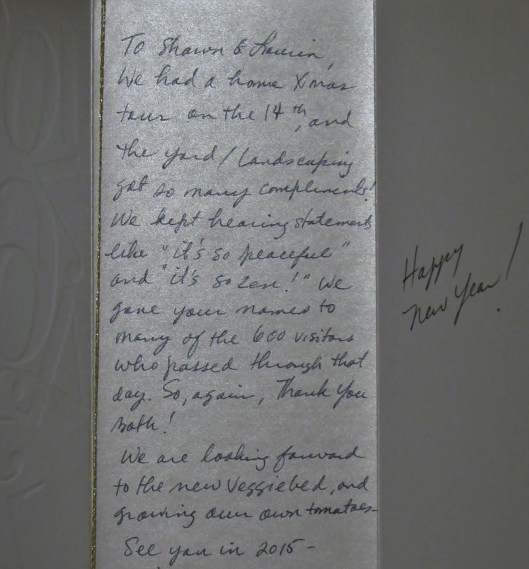 To Shawn &
We had a home Xmas
tour on the 14th, and
the yard / landscaping
got so many compliments!
We kept hearing statements
like "it's so peaceful"
and "it's so zen!" We
gave your names to
many of the 600 visitors
who passed through that
day. So, again, Thank You
Both!
We are looking forward
to the new veggiebed, and
growing our own tomatoes-
See you in 2015-
Happy
New Year!